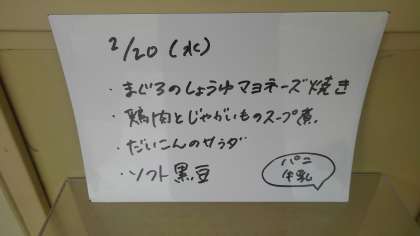 2/20 (水)
・まぐろのしょうゆマヨネーズ焼き
・鶏肉とじゃがいものスープ煮
・だいこんのサラダ
・ソフト黒豆
パン
牛乳